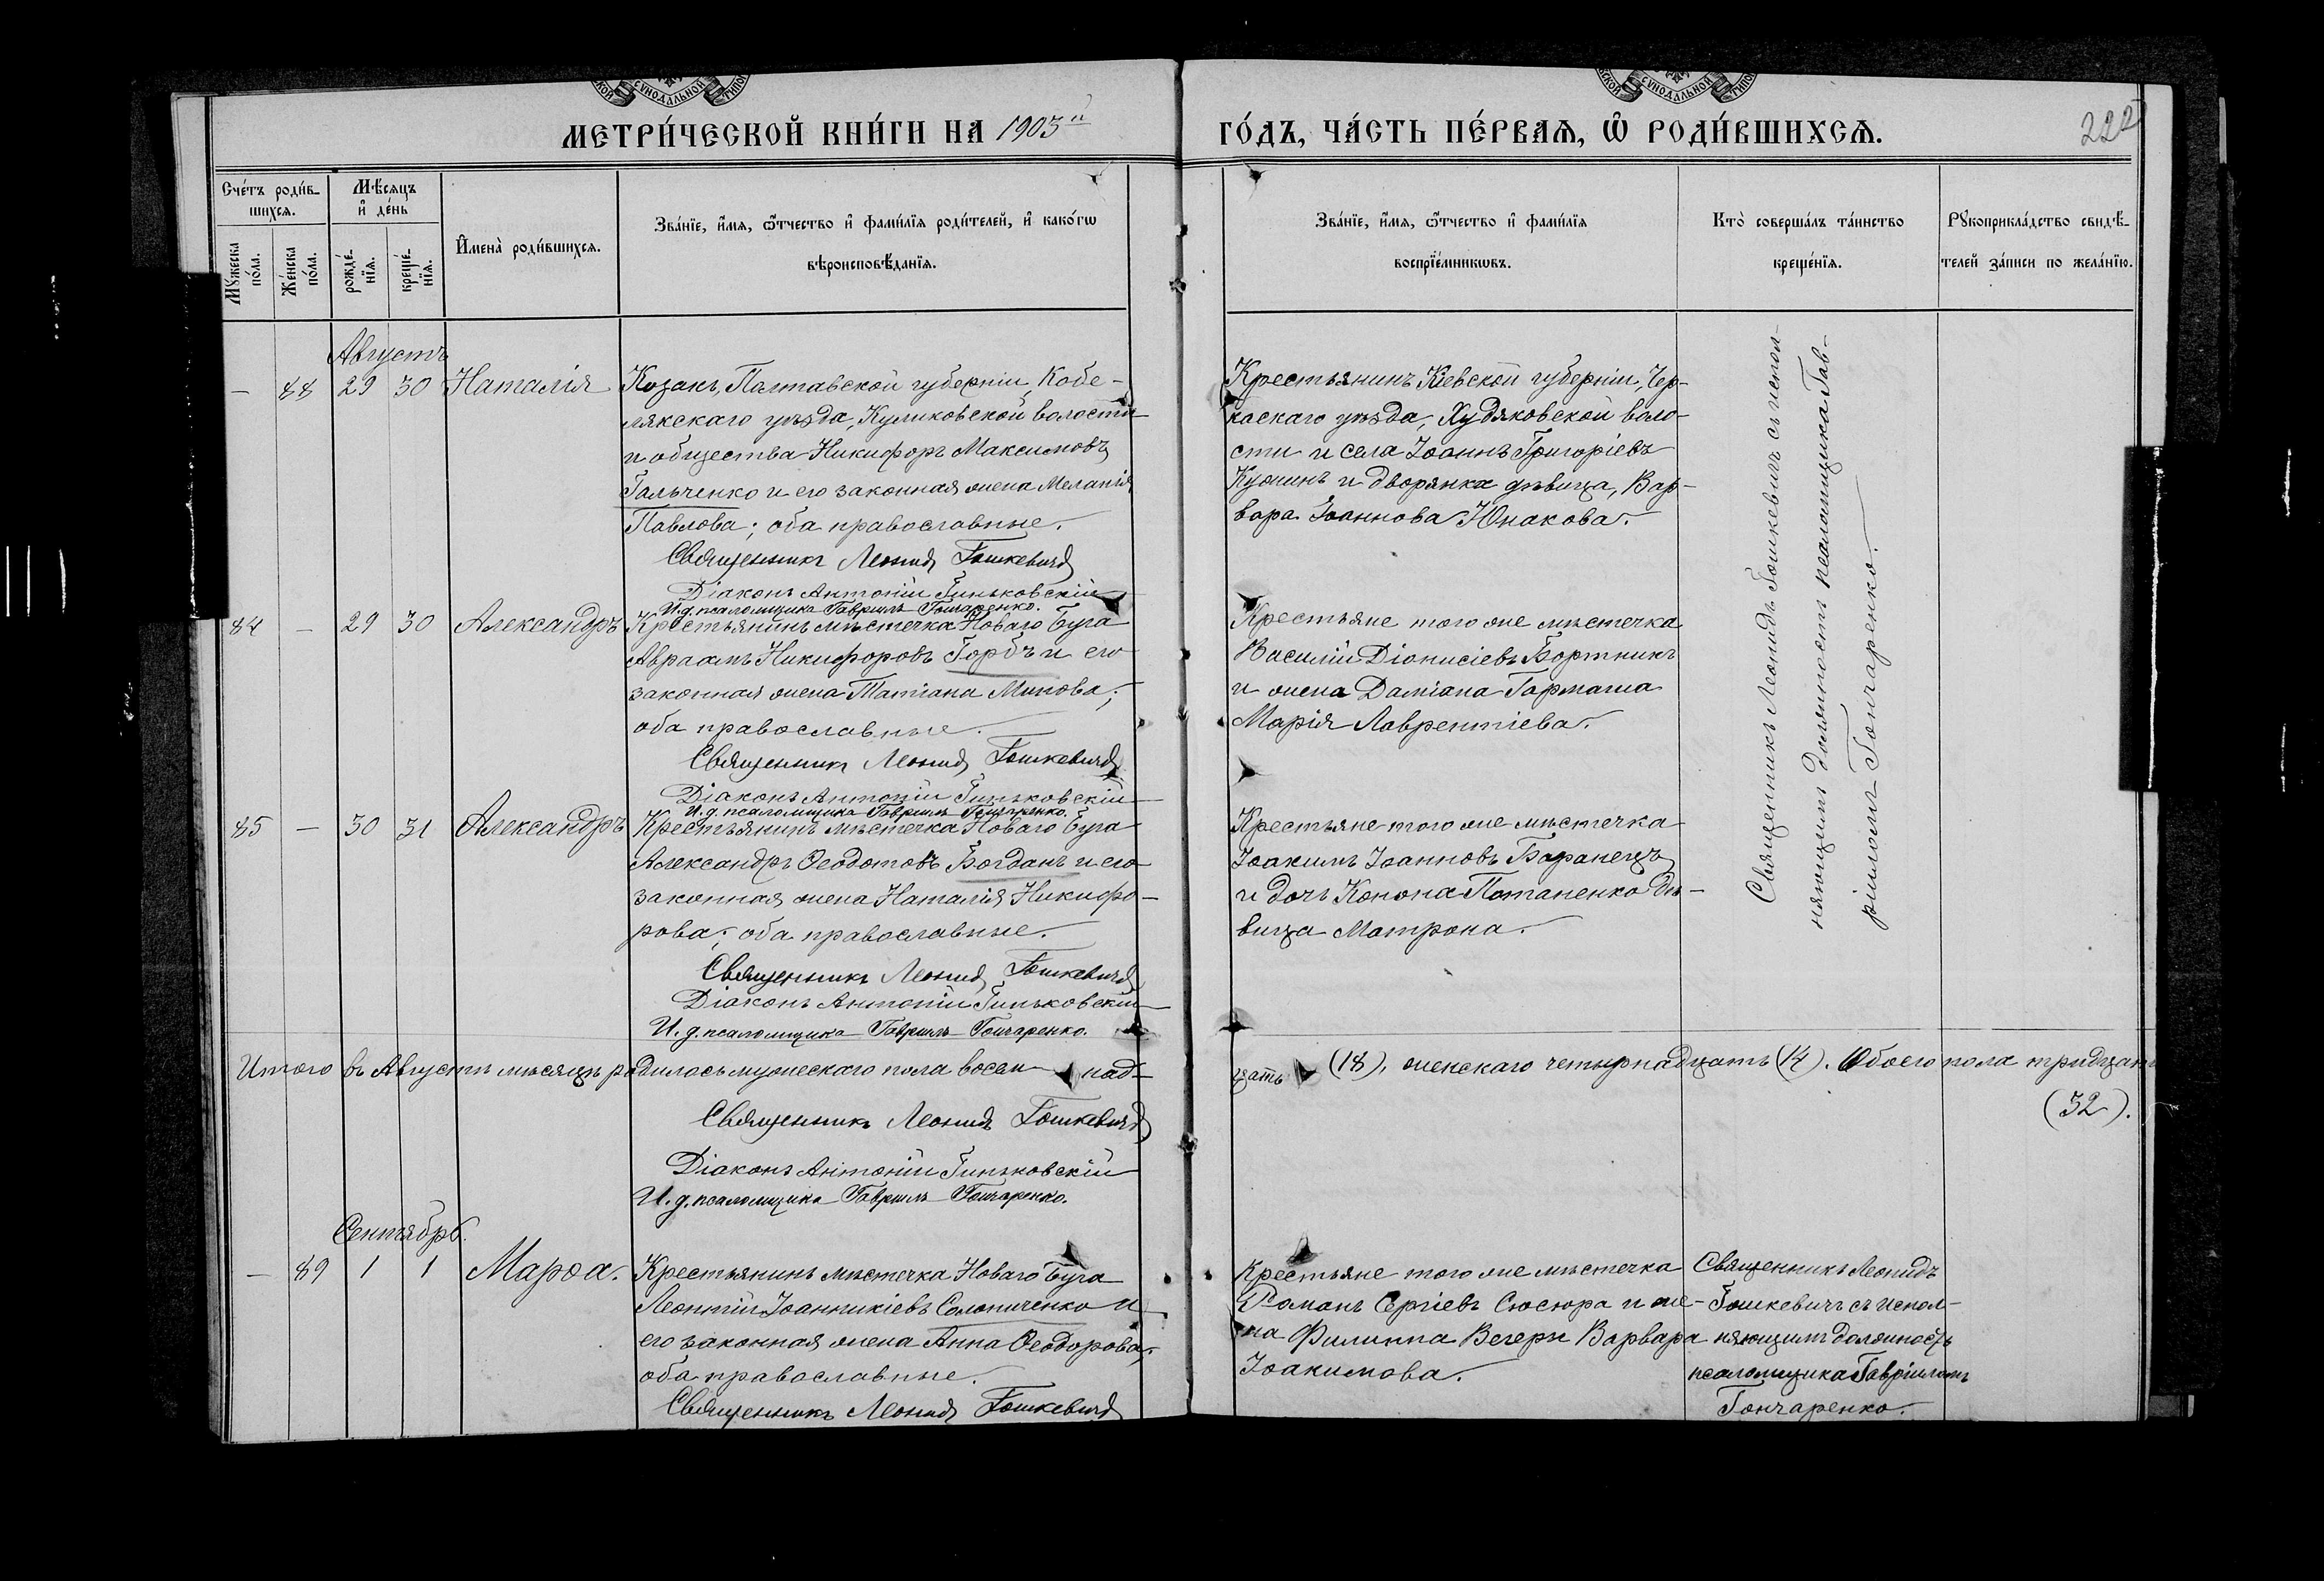 МЕТРИ́ЧЕСКОЙ КНИ́ГИ НА 1903й ГО́ДЪ, ЧА́СТЬ ПЕ́РВАЯ, Ѿ РОДИ́ВШИХСЯ.
222
Сче́тъ роди́в-
шихся.
Мѣ́сяцъ
и҆ де́нь
Му́жеска
по́ла.
Же́нска
по́ла.
рожде́-
нїя.
креще́-
нїя.
И҆мена̀ роди́вшихся.
Зва́нїе, и҆́мя, ѻ҆́тчество и҆ фами́лїя роди́телей, и҆ како́гѡ
вѣроисповѣ́данїя.
Зва́нїе, и҆́мя, ѻ҆́тчество и҆ фами́лїя
воспрїе́мникѡвъ.
Кто̀ соверша́лъ та́инство
креще́нїя.
Рꙋкоприкла́дство свидѣ́-
телей за́писи по жела́нїю.
Августъ
— 88 29 30 Наталія
Козакъ, Полтавской губерніи, Кобе-
лякскаго уѣзда, Куликовской волости
и общества Никифоръ Максимовъ
Гальченко и его законная жена Меланія
Павлова; оба православные.
Священникъ Леонидъ Гошкевичъ
Діаконъ Антоній Гиньковскій
И. д. псаломщика Гавріилъ Гончаренко.
Крестьянинъ Кіевской губерніи, Чер-
каскаго уѣзда, Худяковской воло-
сти и села Іоаннъ Григоріевъ
Кужинъ и дворянка дѣвица, Вар-
вара Іоаннова Юнакова.
Священникъ Леонидъ Гошкевичъ съ испол-
няющимъ должность псаломщика Гав-
ріиломъ Гончаренко.
84 — 29 30 Александръ
Крестьянинъ мѣстечка Новаго Буга
Авраамъ Никифоровъ Горбъ и его
законная жена Татіана Минова;
оба православные.
Священникъ Леонидъ Гошкевичъ
Діаконъ Антоній Гиньковскій
И. д. псаломщика Гавріилъ Гончаренко.
Крестьяне того же мѣстечка
Василій Діонисіевъ Бортникъ
и жена Даміана Гармаша
Марія Лаврентіева.
85 — 30 31 Александръ
Крестьянинъ мѣстечка Новаго Буга
Александръ Ѳеодотовъ Богданъ и его
законная жена Наталія Никифо-
рова; оба православные.
Священникъ Леонидъ Гошкевичъ
Діаконъ Антоній Гиньковскій
И. д. псаломщика Гавріилъ Гончаренко.
Крестьяне того же мѣстечка
Іоакимъ Іоанновъ Баранецъ
и дочь Конона Потапенко дѣ-
вица Матрона.
Итого въ Августѣ мѣсяцѣ родилось мужескаго пола восем над-
цать (18), женскаго четырнадцать (14). Обоего пола тридцать
(32).
Священникъ Леонидъ Гошкевичъ
Діаконъ Антоній Гиньковскій
И. д. псаломщика Гавріилъ Гончаренко.
Сентябрь.
— 89 1 1 Марѳа.
Крестьянинъ мѣстечка Новаго Буга
Леонтій Іоанникіевъ Солониченко и
его законная жена Анна Ѳеодорова;
оба православные.
Священникъ Леонидъ Гошкевичъ
Крестьяне того же мѣстечка
Романъ Сергіевъ Сюсюра и же-
на Филиппа Вегеры Варвара
Іоакимова.
Священникъ Леонидъ
Гошкевичъ съ испол-
няющимъ должность
псаломщика Гавріиломъ
Гончаренко.